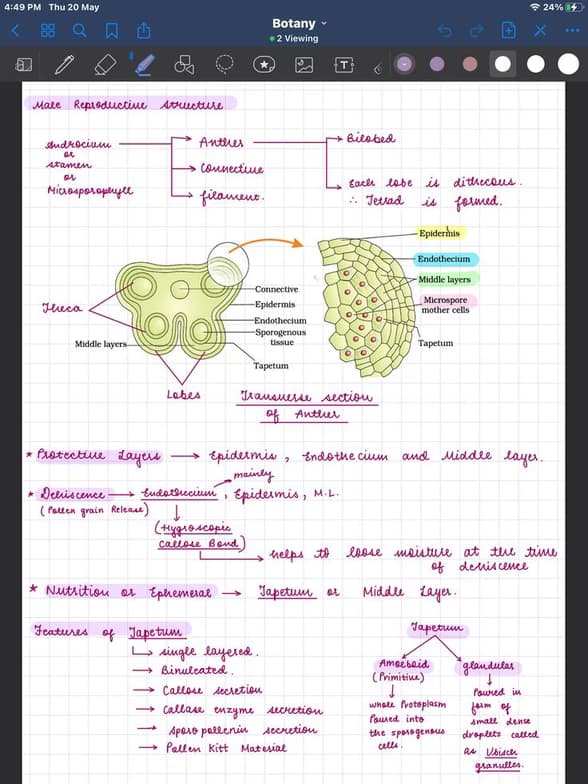 4:49 PM Thu 20 May
24%
Botany
2 Viewing
Male Reproductive Structure
Androcium
or
Stamen
or
Microsporophyll
Anther
Connective
filament.
Bilobed
Each lobe is dithecous.
∴ Tetrad is formed.
Epidermis
Endothecium
Middle layers
Microspore
mother cells
Tapetum
Connective
Epidermis
Endothecium
Sporogenous
tissue
Tapetum
Theca
Middle layers
Lobes
Transverse section
of Anther
* Protective Layers → Epidermis, Endothecium and Middle layer.
mainly
* Dehiscence → Endothecium, Epidermis, M.L.
(Pollen grain Release)
(Hygroscopic
Callose Band)
helps to loose moisture at the time
of dehiscence
* Nutrition or Ephemeral → Tapetum or Middle Layer.
Features of Tapetum
single layered.
→ Binucleated.
→ Callose secretion
→ Callase enzyme secretion
→ Sporopollenin secretion
→ Pollen Kitt Material
Tapetum
Amoeboid
(Primitive)
whole Protoplasm
Poured into
the sporogenous
cells.
glandular
Poured in
form of
small dense
droplets called
as Ubisch
granulles.